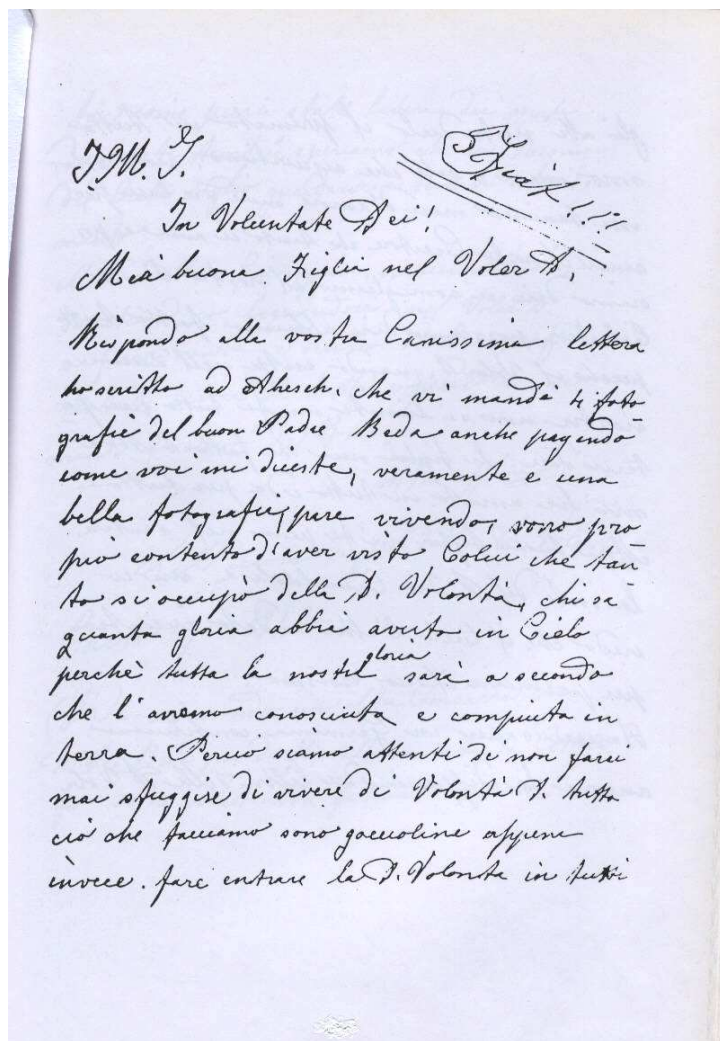 J. M. J.
Fiat!!!
In Voluntate Dei!
Mia buona Figlia nel Voler D.
Rispondo alla vostra Carissima lettera
ho scritto ad che vi manda 4 foto
grafie del buon Padre Beda anche pagando
come voi mi dieste, veramente e una
bella fotografia, pare vivendo, sono pro
pio contento d'aver visto Colui che tan
to si occupò della D. Volontà, chi sà
quanta gloria abbia avuto in Cielo
perchè tutta la nostra gloria sarà a secondo
che l'avremo conosciuta e compiuta in
terra. Perciò siamo attenti di non farci
mai sfuggire di vivere di Volontà D. tutto
ciò che facciamo sono goccioline appena
invece. fare entrare la D. Volontà in tutti